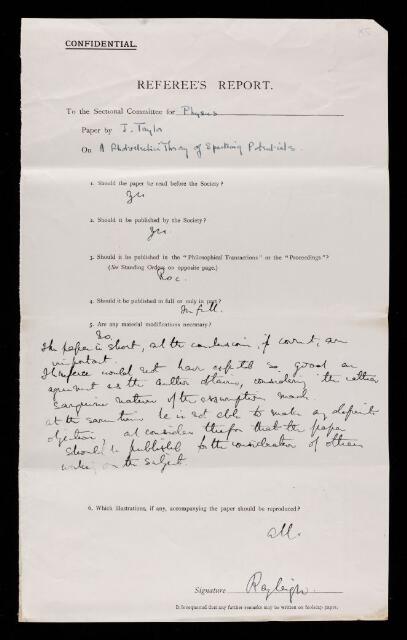 CONFIDENTIAL.
REFEREE'S REPORT.
To the Sectional Committee for Physics
Paper by J. Taylor
On A Photoelectric Theory of Sparking Potentials.
1. Should the paper be read before the Society?
Yes
2. Should it be published by the Society?
Yes.
3. Should it be published in the "Philosophical Transactions" or the "Proceedings"?
(See Standing Orders on opposite page.)
Proc.
4. Should it be published in full or only in part?
In full.
5. Are any material modifications necessary?
No.
The paper is short, and the conclusions, if correct, are
important.
The referee would not have expected so good an
agreement as the author obtains, considering the rather
sanguine nature of the assumptions made.
At the same time he is not able to make any definite
objection, and considers therefore that the paper
should be published for the consideration of others
working on the subject.
6. Which illustrations, if any, accompanying the paper should be reproduced?
All.
Signature Rayleigh.
It is requested that any further remarks may be written on foolscap paper.